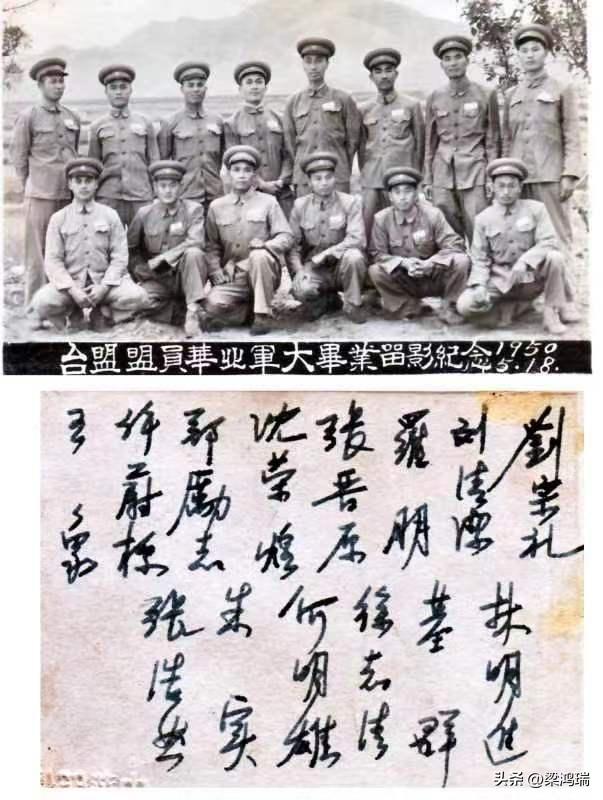 台盟盟員華北軍大畢業留影紀念 1950.5.18.
劉崇礼
刘清
羅明
張晋原
沈荣煌
郑勵志
蔚
王
林明進
群
徐志清
何明雄
朱实
張浩然
头条 @梁鸿瑞